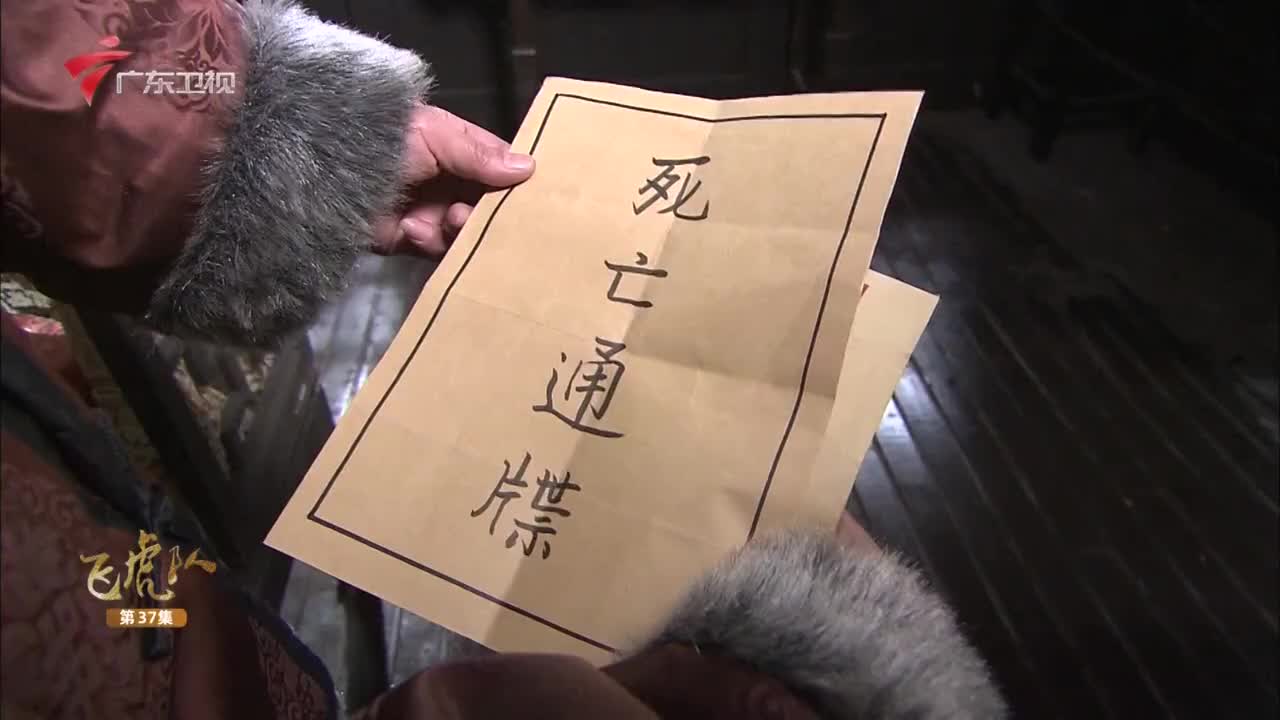 广东卫视
死亡通牒
飞虎队
第37集